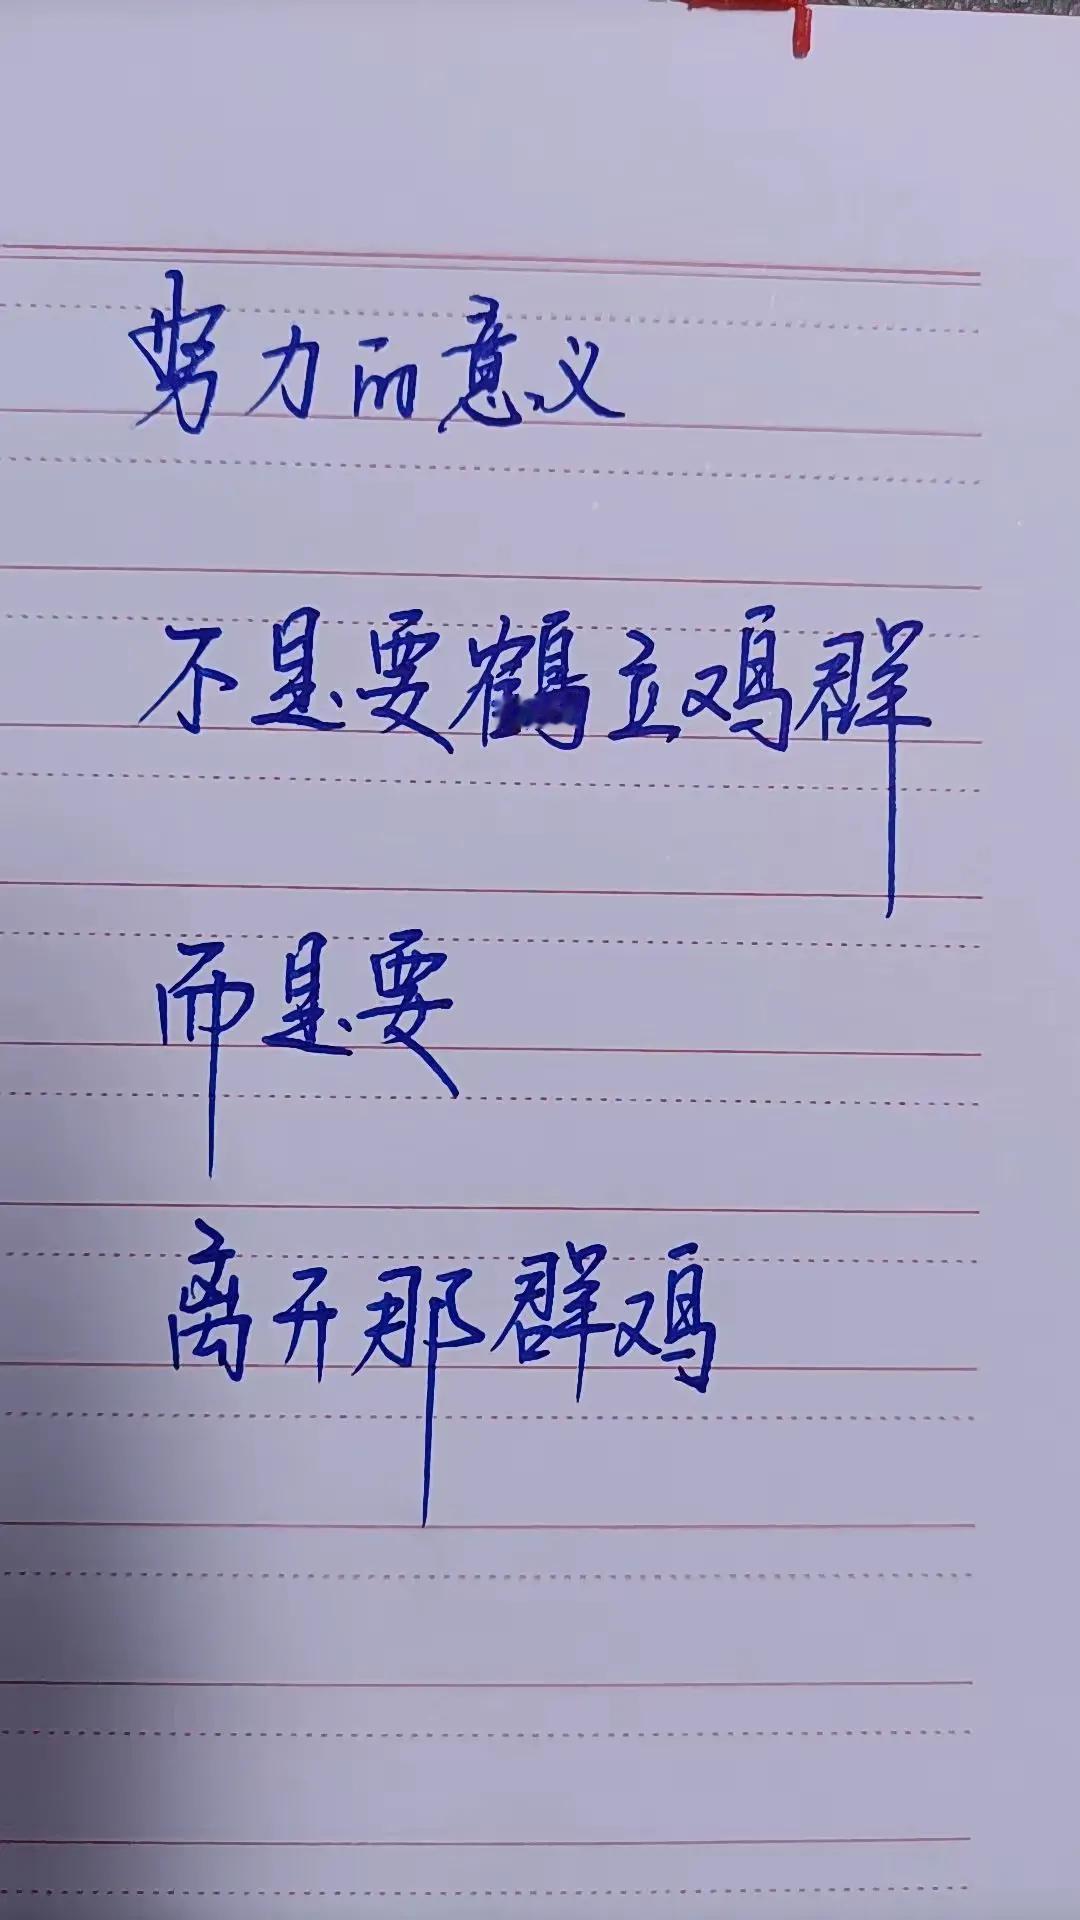 努力的意义
不是要鹤立鸡群
而是要
离开那群鸡